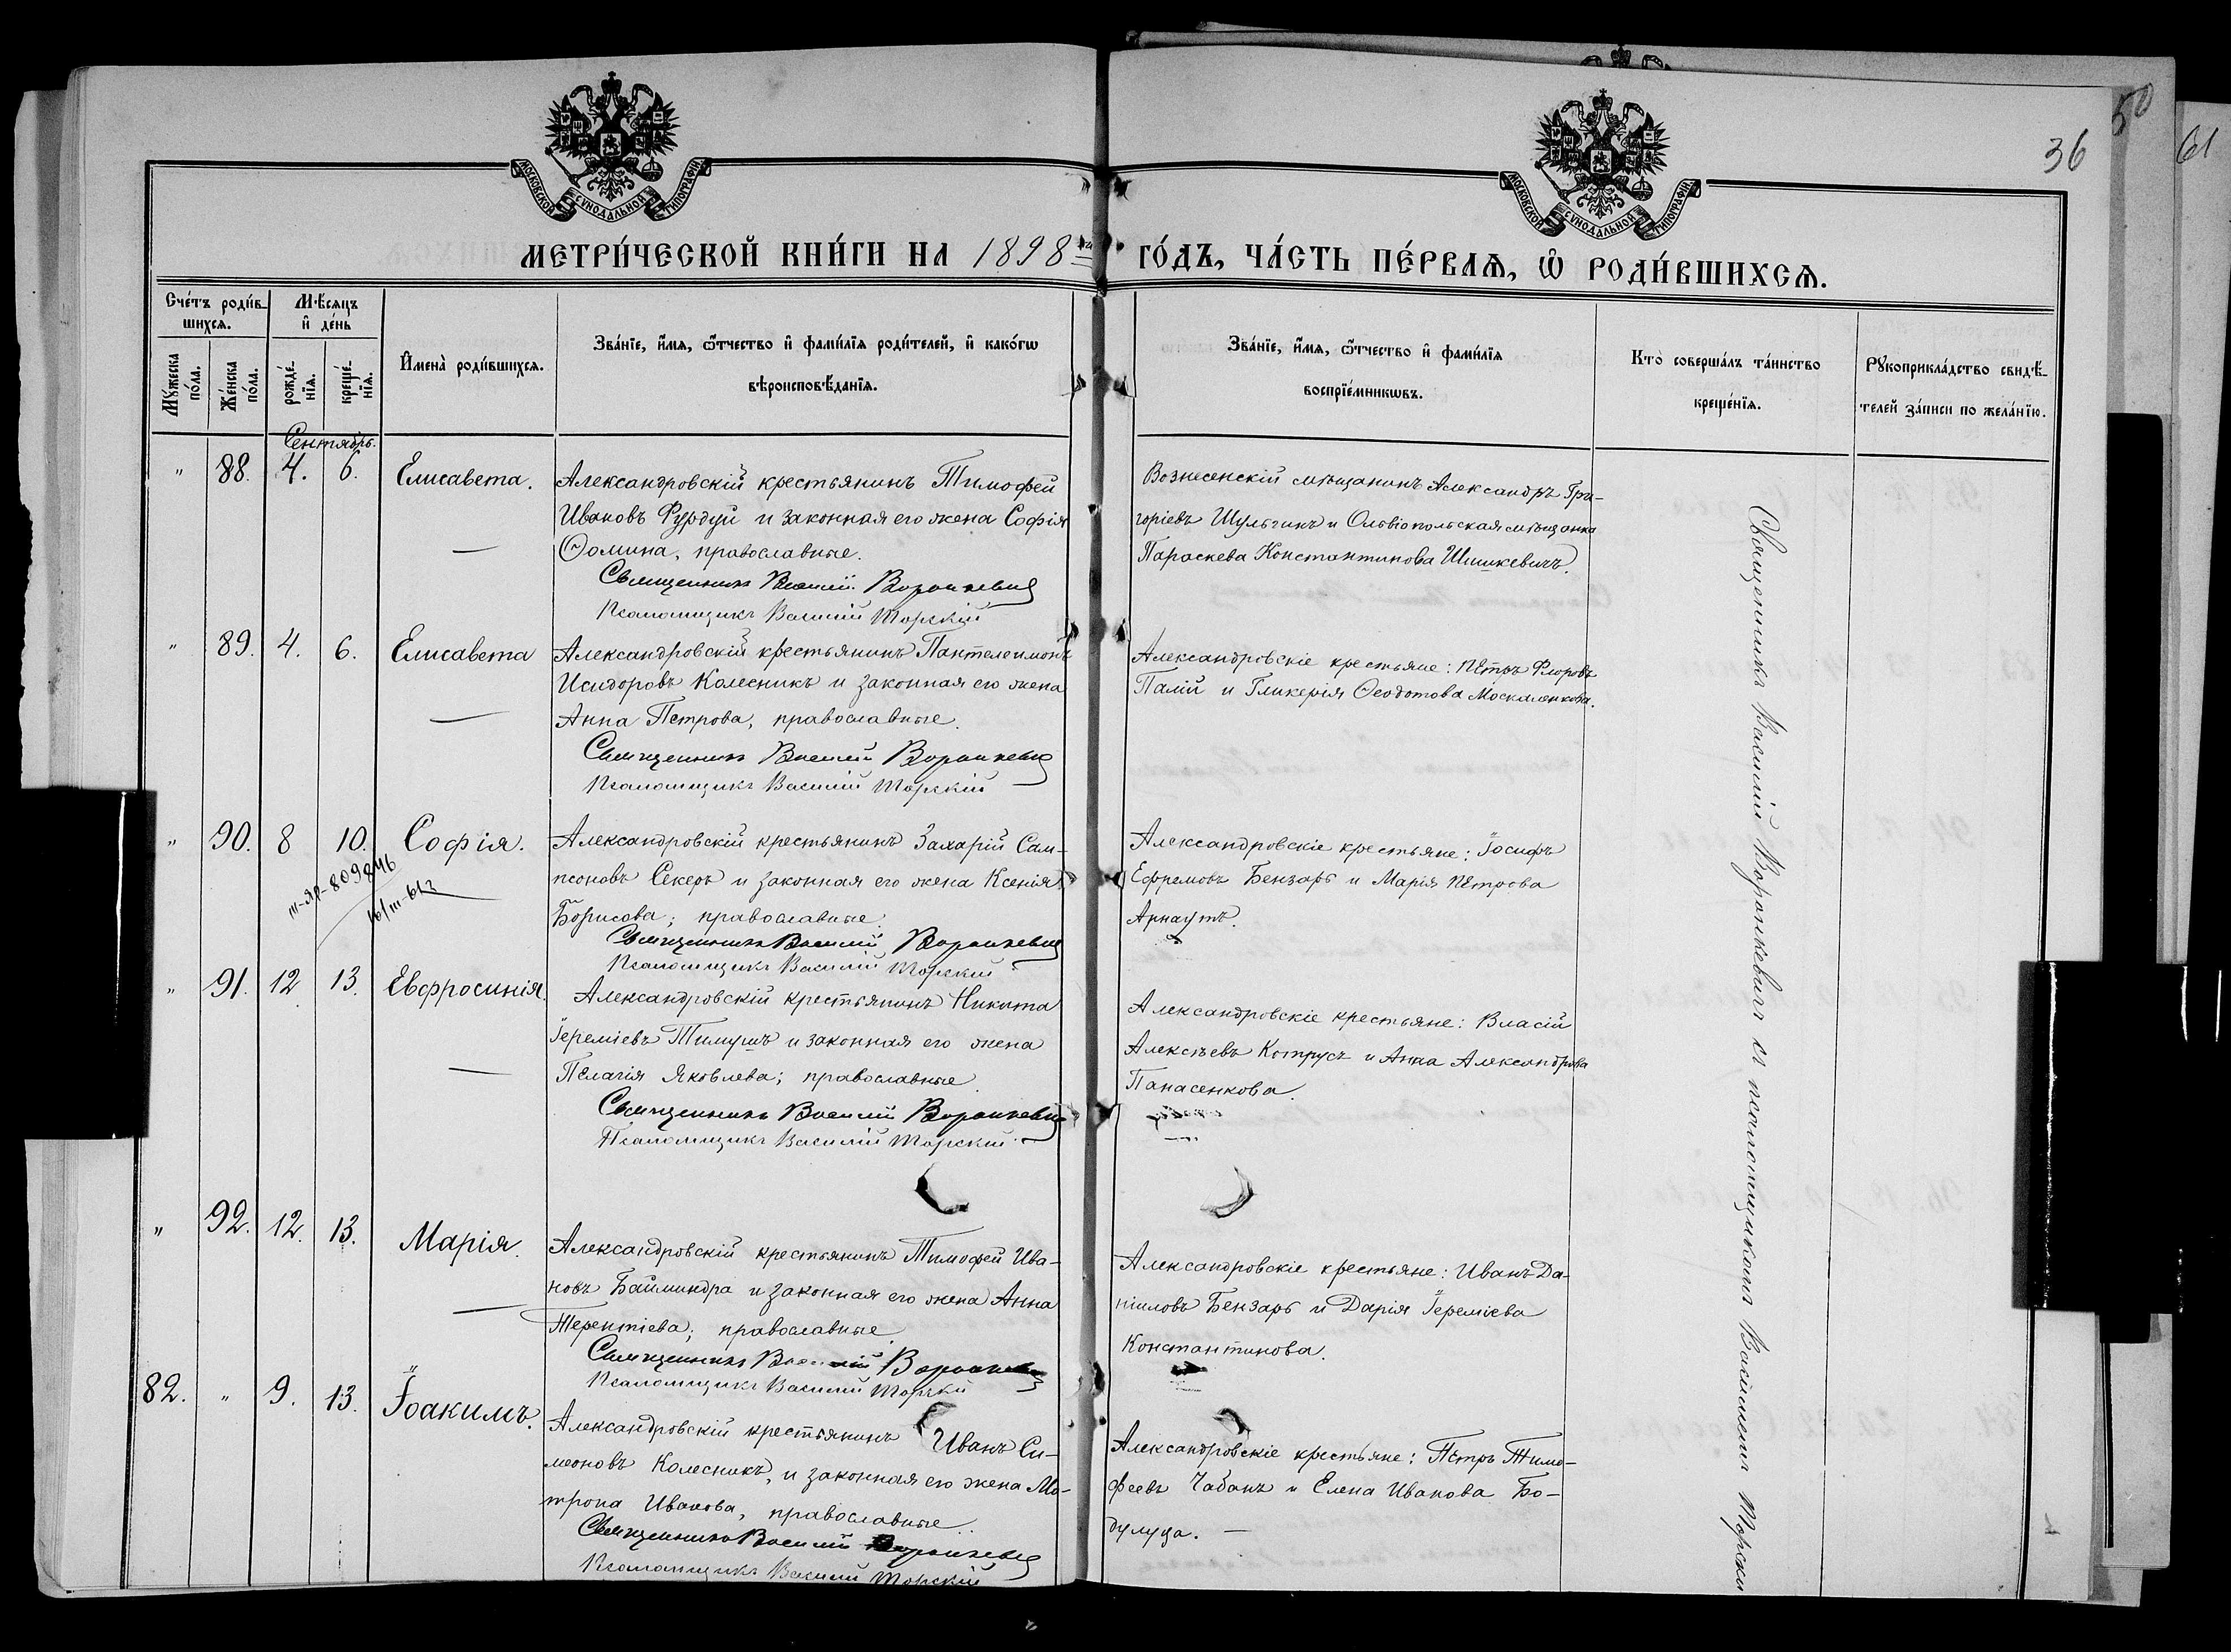 36
50
61
МОСКОВСКОЙ СѴНОДАЛЬНОЙ ТИПОГРАФІИ
МОСКОВСКОЙ СѴНОДАЛЬНОЙ ТИПОГРАФІИ
МЕТРИ́ЧЕСКОЙ КНИ́ГИ НА 1898 й ГО́ДЪ, ЧА́СТЬ ПЕ́РВАѦ, Ѽ РОДИ́ВШИХСѦ.
Сче́тъ роди́в-
шихсѧ.
Мꙋ́жеска по́ла.
Же́нска по́ла.
Мѣ́сѧцъ
и҆ де́нь
рожде́-
нїѧ.
креще́-
нїѧ.
И҆мена̀ роди́вшихсѧ.
Зва́нїе, и҆́мѧ, ѻ҆́тчество и҆ фами́лїѧ роди́телей, и҆ како́гѡ
вѣроисповѣ́данїѧ.
Зва́нїе, и҆́мѧ, ѻ҆́тчество и҆ фами́лїѧ
воспрїе́мникѡвъ.
Кто̀ соверша́лъ та́инство
креще́нїѧ.
Рꙋкоприкла́дство свидѣ́-
телей за́писи по жела́нїю.
Сентябрь.
" 88. 4. 6. Елисавета.
Александровскій крестьянинъ Тимофей
Ивановъ Фурдуй и законная его жена Софія
Ѳомина, православные.
Священникъ Василій Воронкевич
Псаломщикъ Василій Торскій
Вознесенскій мѣщанинъ Александръ Гри-
горіевъ Шульгинъ и Ольвіопольская мѣщанка
Параскева Константинова Шишкевичъ.
" 89. 4. 6. Елисавета
Александровскій крестьянинъ Пантелеимонъ
Исидоровъ Колесникъ и законная его жена
Анна Петрова, православные.
Священникъ Василій Воронкевич
Псаломщикъ Василій Торскій
Александровскіе крестьяне: Петръ Флоровъ
Палій и Гликерія Ѳеодотова Москаленкова.
" 90. 8 10. Софія.
III-ЯР-809846
Александровскій крестьянинъ Захарій Сам-
псоновъ Секеръ и законная его жена Ксенія
Борисова; православные.
Священникъ Василій Воронкевич
Псаломщикъ Василій Торскій
Александровскіе крестьяне: Іосифъ
Ефремовъ Бензарь и Марія Петрова
Арнаутъ.
" 91. 12. 13. Евфросинія.
Александровскій крестьянинъ Никита
Іереміевъ Тимушъ и законная его жена
Пелагія Яковлева; православные.
Священникъ Василій Воронкевич
Псаломщикъ Василій Торскій
Александровскіе крестьяне: Власій
Алексѣевъ Котрусъ и Анна Александрова
Панасенкова.
" 92. 12. 13. Марія.
Александровскій крестьянинъ Тимофей Ива-
новъ Байминдра и законная его жена Анна
Терентіева; православные
Священникъ Василій Воронкевич
Псаломщикъ Василій Торскій
Александровскіе крестьяне: Иванъ Да-
ніиловъ Бензарь и Дарія Іереміева
Константинова.
82. " 9. 13. Іоакимъ.
Александровскій крестьянинъ Иванъ Си-
меоновъ Колесникъ, и законная его жена Ма-
трона Иванова, православные.
Священникъ Василій Воронкевич
Псаломщикъ Василій Торскій
Александровскіе крестьяне: Петръ Тимо-
феевъ Чабанъ и Елена Иванова Бо-
дулуца.
Священникъ Василій Воронкевичъ съ псаломщикомъ Василіемъ Торски